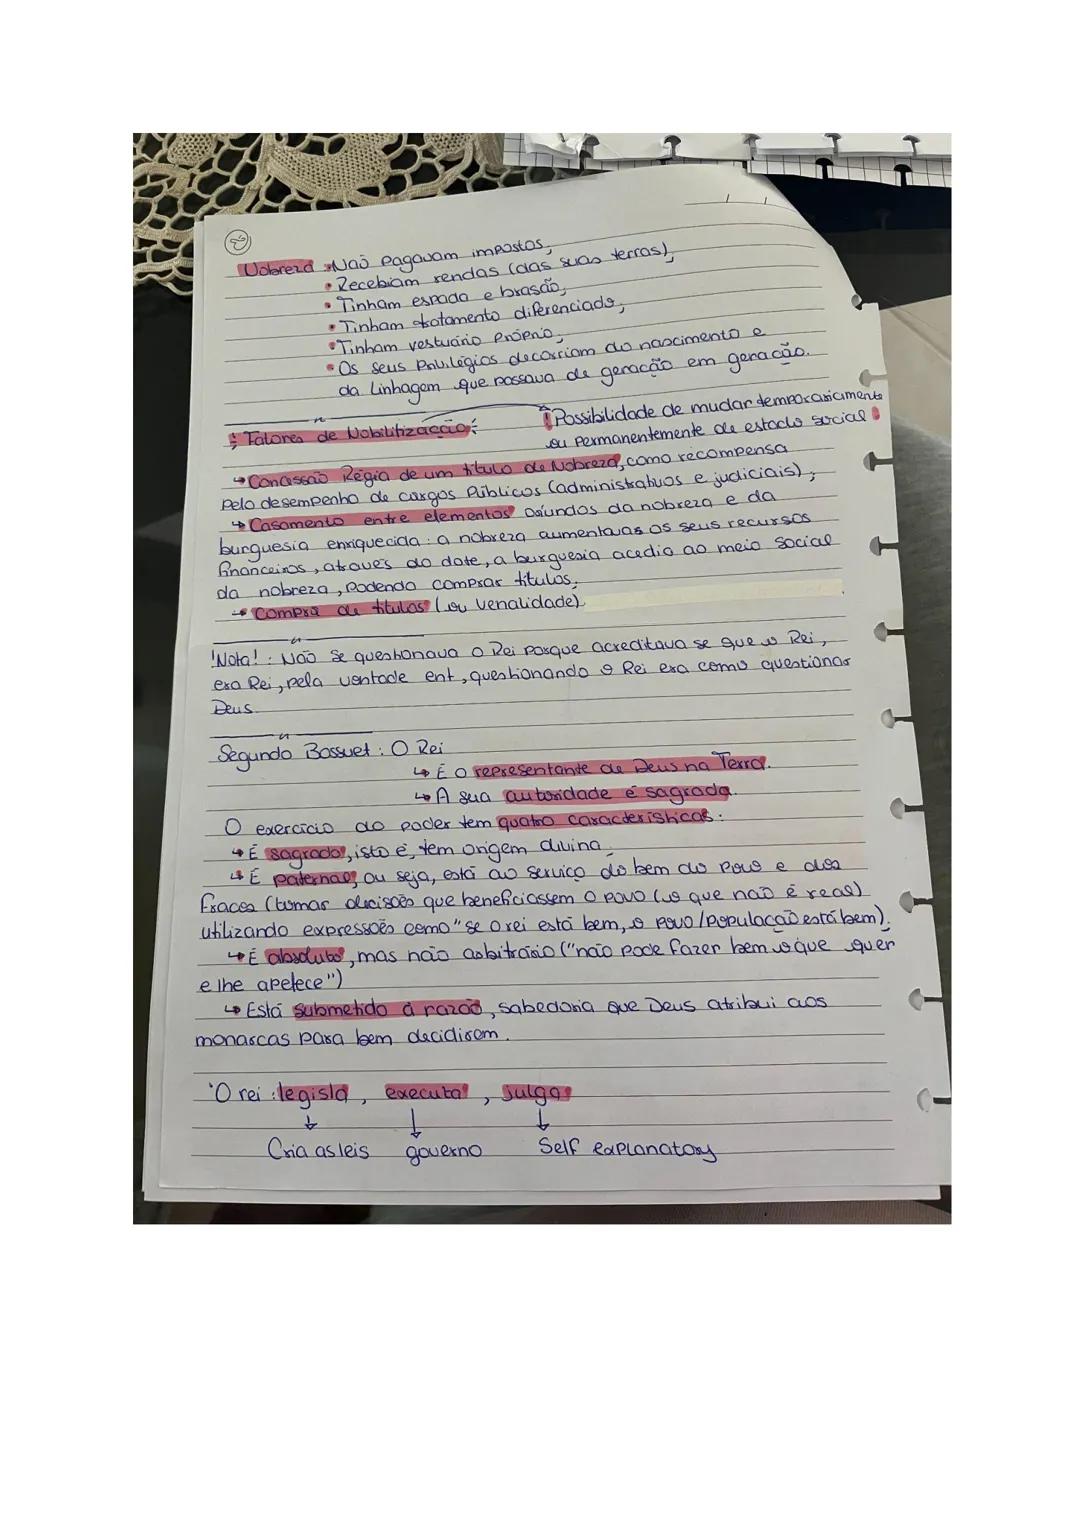 2
Nobreza • Não Pagavam impostos;
• Recebiam rendas (das suas terras);
• Tinham espada e brasão;
• Tinham tratamento diferenciado;
• Tinham vestuário Próprio;
• Os seus Privilégios decorriam do nascimento e
da Linhagem que passava de geração em geração.
! Possibilidade de mudar temporariamente
ou Permanentemente de estado social !
Fatores de Nobilitização:
↳ Concessão Régia de um título de Nobreza, como recompensa
Pelo desempenho de cargos Públicos (administrativos e judiciais);
↳ Casamento entre elementos oriundos da nobreza e da
burguesia enriquecida: a nobreza aumentavas os seus recursos
financeiros, através do dote, a burguesia acedia ao meio social
da nobreza, Podendo comprar títulos;
↳ Compra de títulos (ou venalidade)
!Nota!: Não se questionava o Rei porque acreditava se que o Rei,
era Rei, pela vontade ent, questionando o Rei era como questionar
Deus.
Segundo Bossuet: O Rei
↳ É o representante de Deus na Terra.
↳ A sua autoridade é sagrada.
O exercício do poder tem quatro características:
↳ É sagrado, isto é, tem origem divina.
↳ É paternal, ou seja, está ao serviço do bem do Povo e dos
fracos (tomar decisões que beneficiassem o povo (o que não é real)
utilizando expressões como "se o rei está bem, o povo/população está bem).
↳ É absoluto, mas não arbitrário ("não pode fazer bem o que quer
e lhe apetece")
↳ Está submetido à razão, sabedoria que Deus atribui aos
monarcas para bem decidirem.
'O rei: legisla, executa, julga
Cria as leis governo Self explanatory